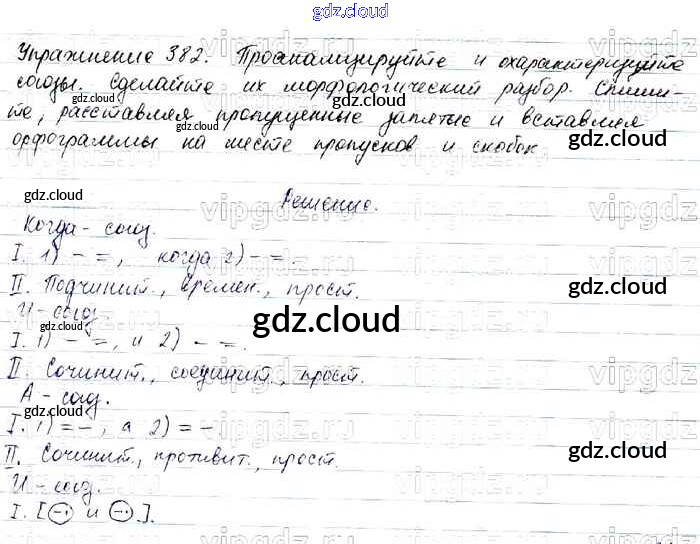 gdz.cloud
Упражнение 382. Проанализируйте и охарактеризуйте
союзы. Сделайте их морфологический разбор. Спиши-
те, расставляя пропущенные запятые и вставляя
орфограммы на месте пропусков и скобок
Решение.
Когда - союз.
I. 1) - =, когда 2) - =
II. Подчинит., времен., прост.
И - союз.
I. 1) - =, и 2) - =.
II. Сочинит., соединит., прост.
А - союз.
I. 1) = -, а 2) = -
II. Сочинит., противит., прост.
И - союз.
I. [⊖ и ⊖].
gdz.cloud
gdz.cloud
gdz.cloud
gdz.cloud
gdz.cloud
gdz.cloud
gdz.cloud
gdz.cloud
gdz.cloud
gdz.cloud
gdz.cloud
gdz.cloud
vipgdz.ru
vipgdz.ru
vipgdz.ru
vipgdz.ru